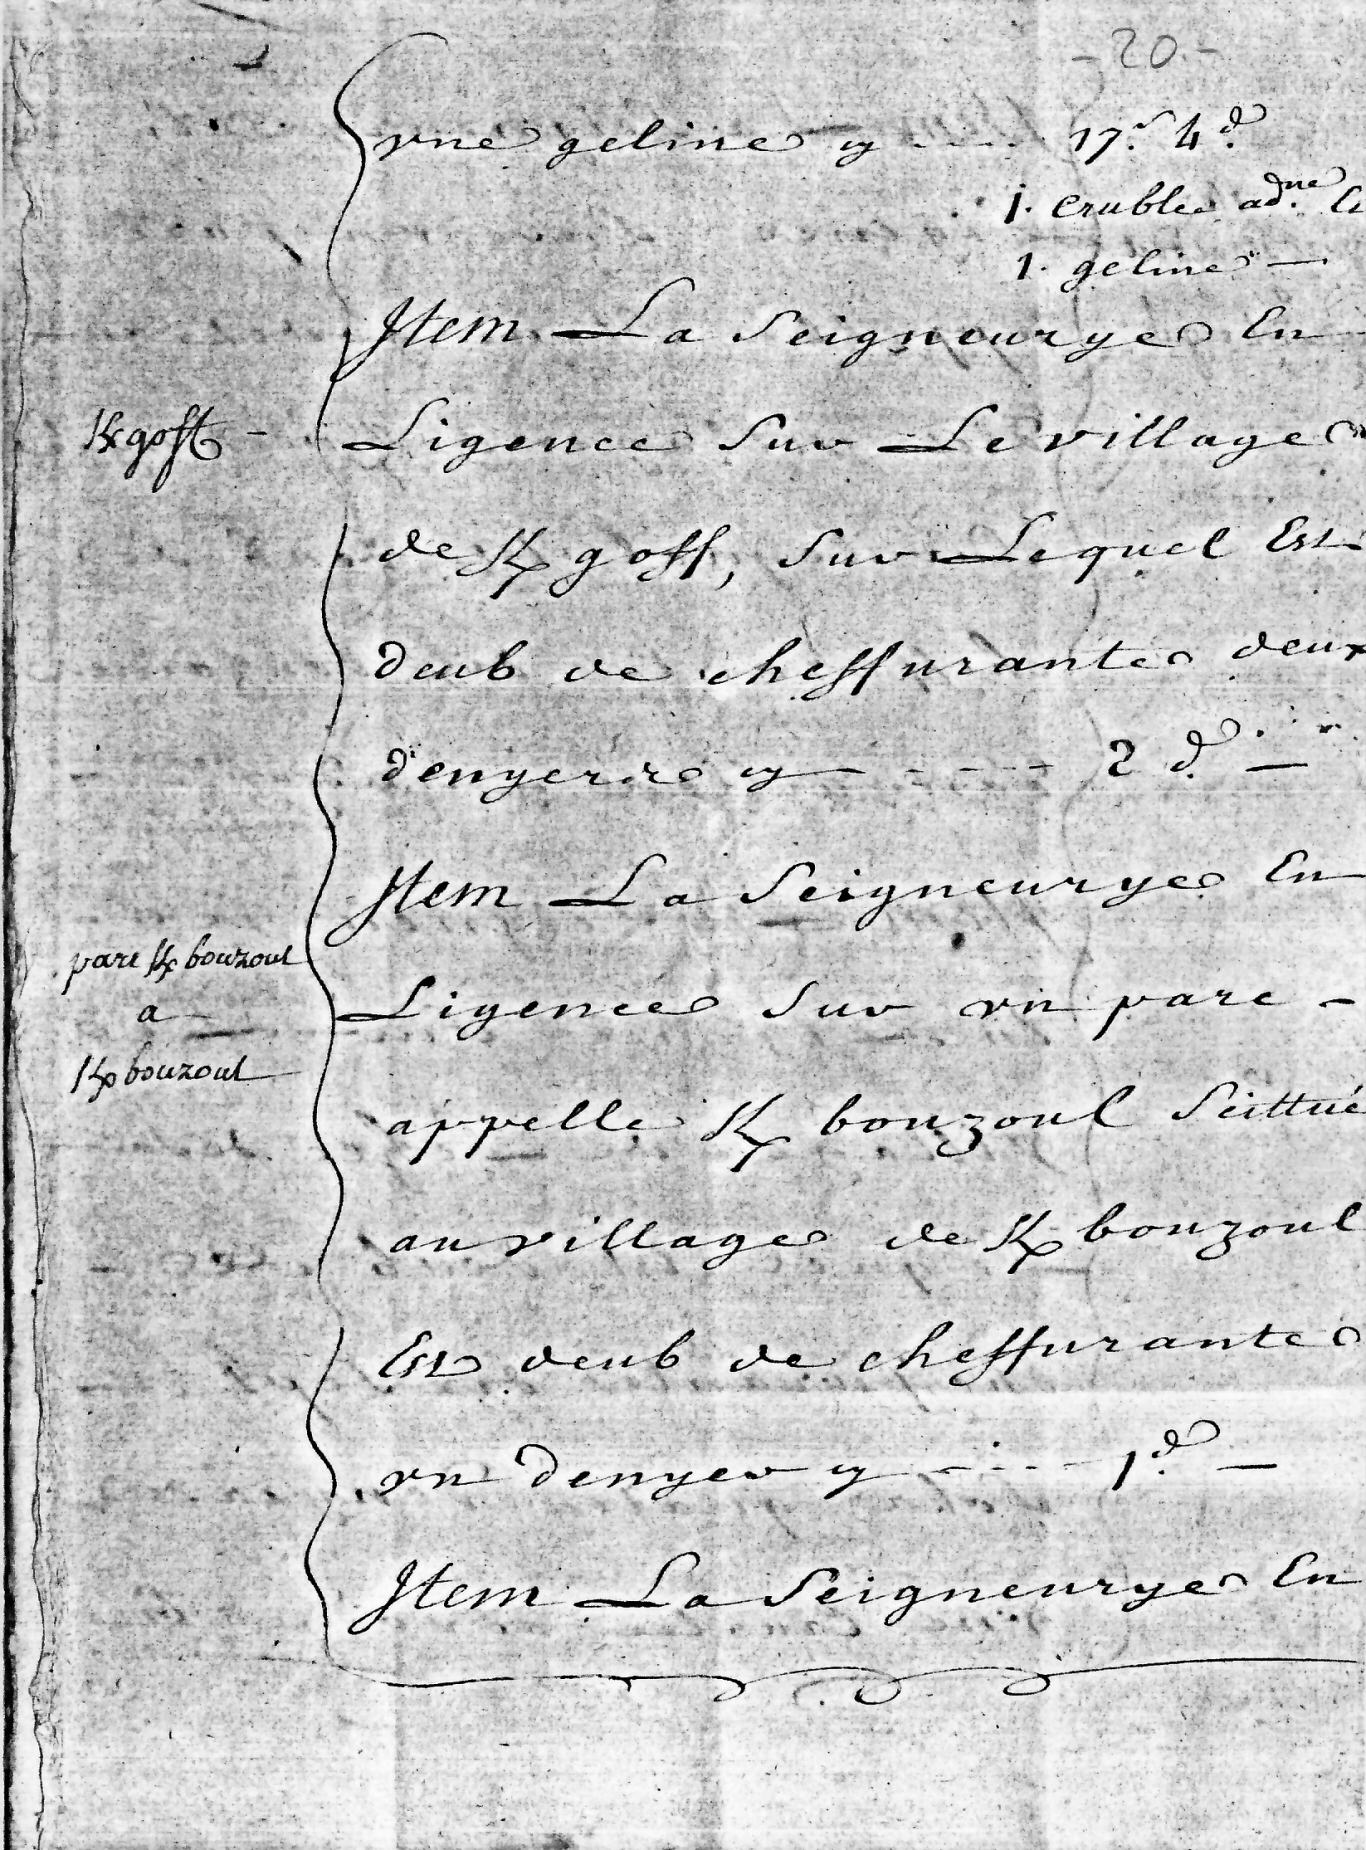 - 20 -
vne geline cy ---- 17.s 4.d
1. crublee ad.ne
1. geline —
Jtem La Seigneurye En
Kgoff -
Ligence Sur Le village
de K goff, Sur Lequel Est
deub de cheffrante deux
denyers cy ---- 2 d. —
Jtem La Seigneurye En
parc K bouzoul
Ligence Sur vn parc -
a
K bouzoul
appelle K bouzoul Scittué
au village de K bouzoul
Est deub de cheffrante
vn denyer cy ---- 1.d —
Jtem La Seigneurye En